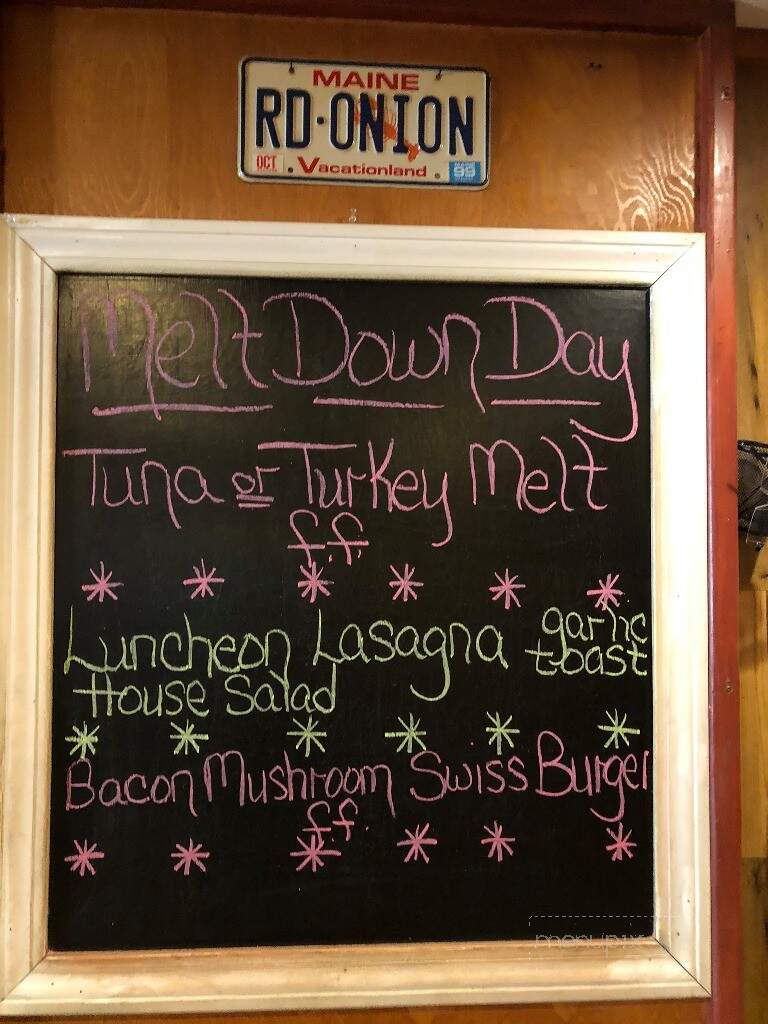 MAINE
RD·ONION
OCT Vacationland MAINE 99
Melt Down Day
Tuna or Turkey Melt
f.f.
Luncheon Lasagna garlic
toast
House Salad
Bacon Mushroom Swiss Burger
f.f.
menupix